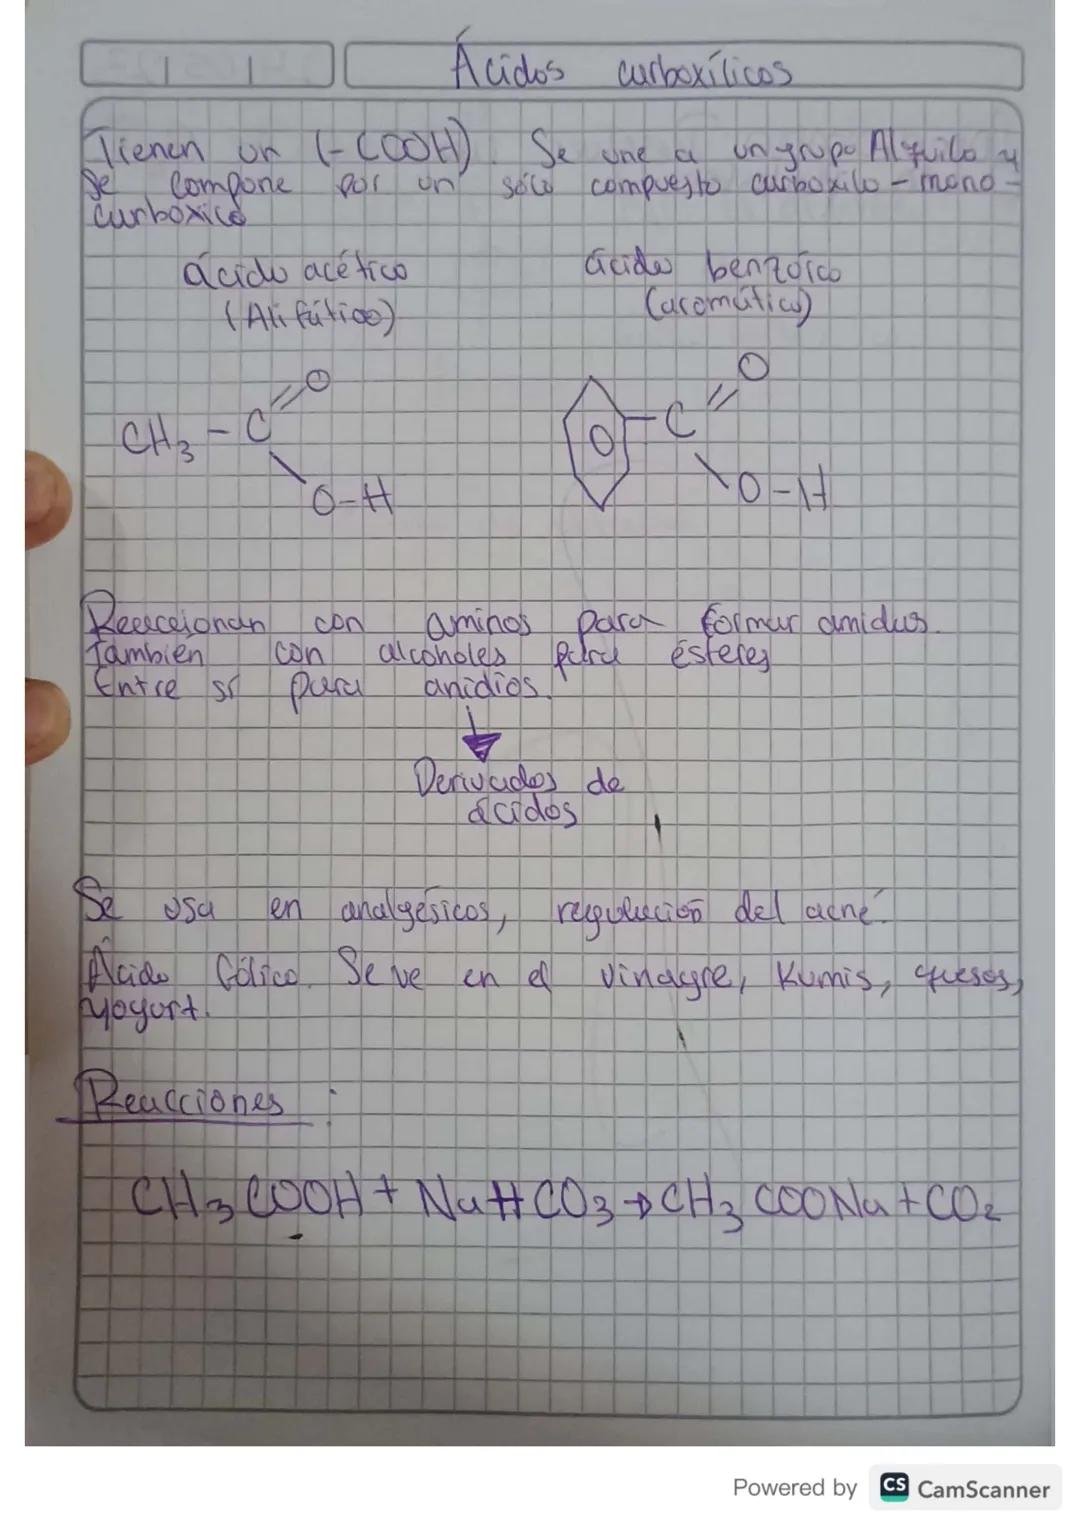 Ácidos carboxílicos
Tienen un (-COOH). Se une a un grupo Alquilo y
se compone por un sólo compuesto carboxilo - mono -
carboxico
ácido acético ácido benzoico
(Alifático) (aromático)
O O
CH3 - C - C
O-H O-H
Reaccionan con aminos para formar amidas.
También con alcoholes para ésteres
Entre sí para anidios.
Derivados de
ácidos
Se usa en analgésicos, regulación del acné.
Ácido fólico. Se ve en el vinagre, Kumis, quesos,
yogurt.
Reacciones :
CH3 COOH + NaHCO3 → CH3 COONa + CO2
Powered by CS CamScanner